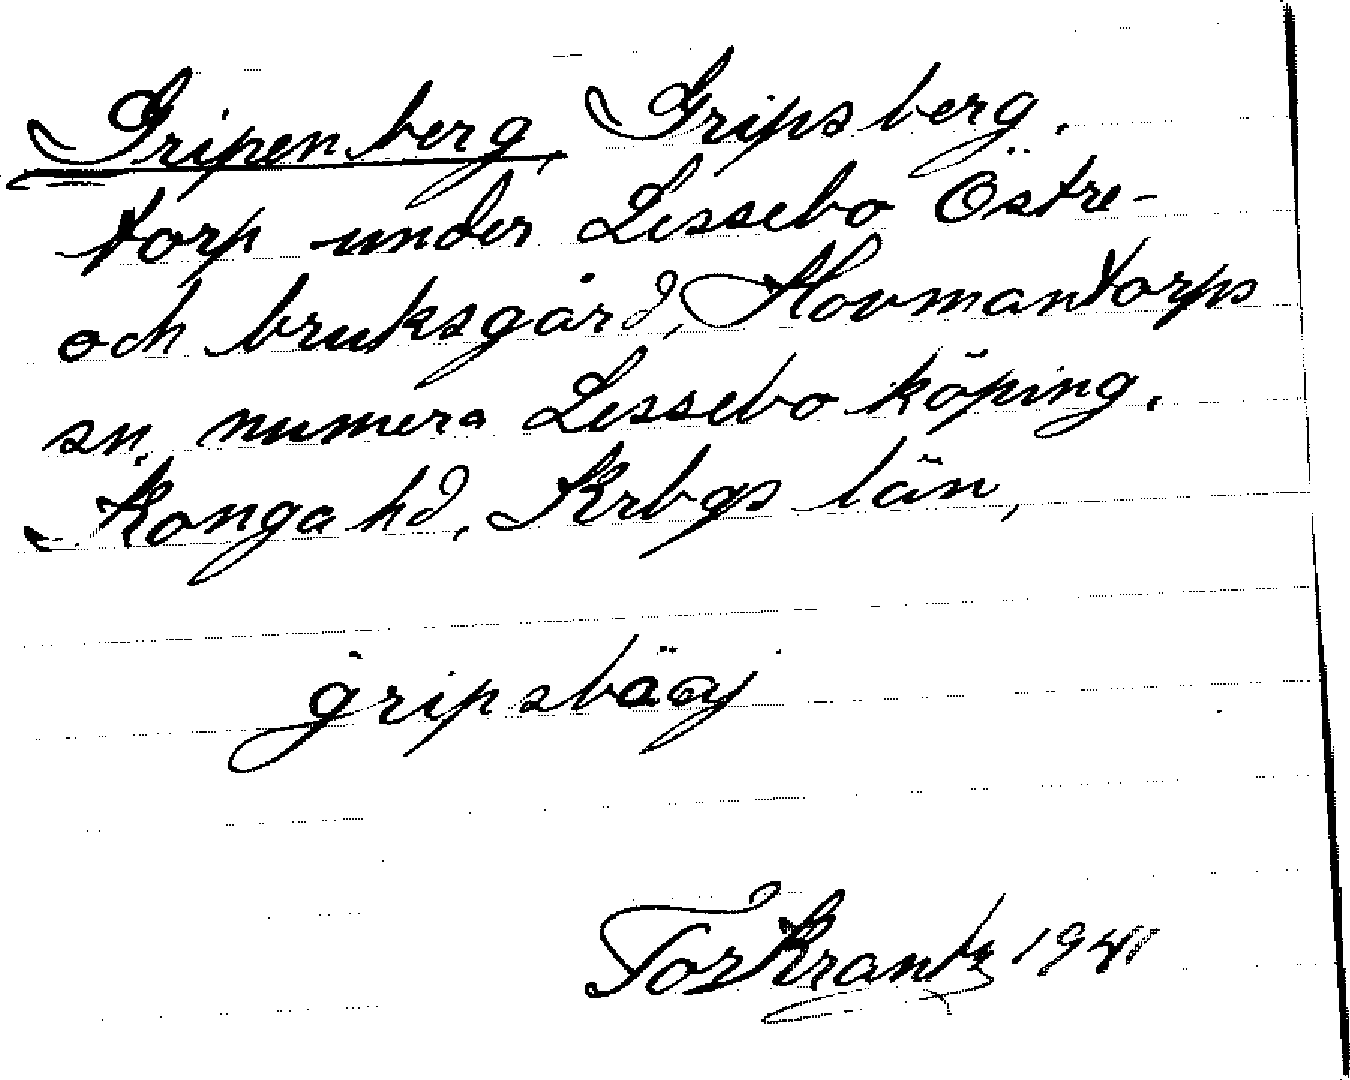 Gripenberg, Gripsberg.
torp under Lessebo Östre-
och bruksgård, Hovmantorps
sn. numera Lessebo köping.
Konga hd, Krbgs län,
gripsbäj
Tor Krantz 1941